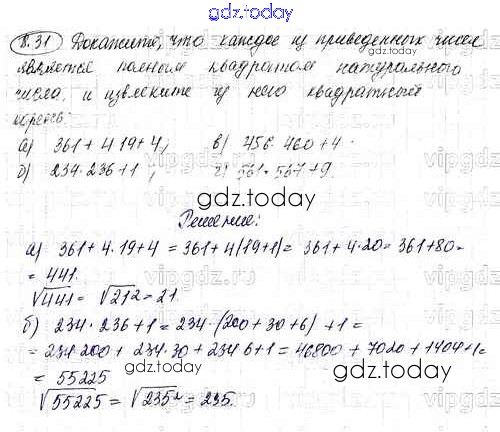 gdz.today
8.31 Докажите, что каждое из приведенных чисел
является полным квадратом натурального
числа, и извлеките из него квадратный
корень:
а) 361 + 4·19 + 4; в) 456·460 + 4.
б) 234·236 + 1; г) 561·567 + 9.
gdz.today
Решение:
а) 361 + 4·19 + 4 = 361 + 4(19+1) = 361 + 4·20 = 361 + 80 =
= 441.
√441 = √21² = 21.
б) 234·236 + 1 = 234·(200 + 30 + 6) + 1 =
= 234·200 + 234·30 + 234·6 + 1 = 46800 + 7020 + 1404 + 1 =
= 55225
√55225 = √235² = 235.
gdz.today